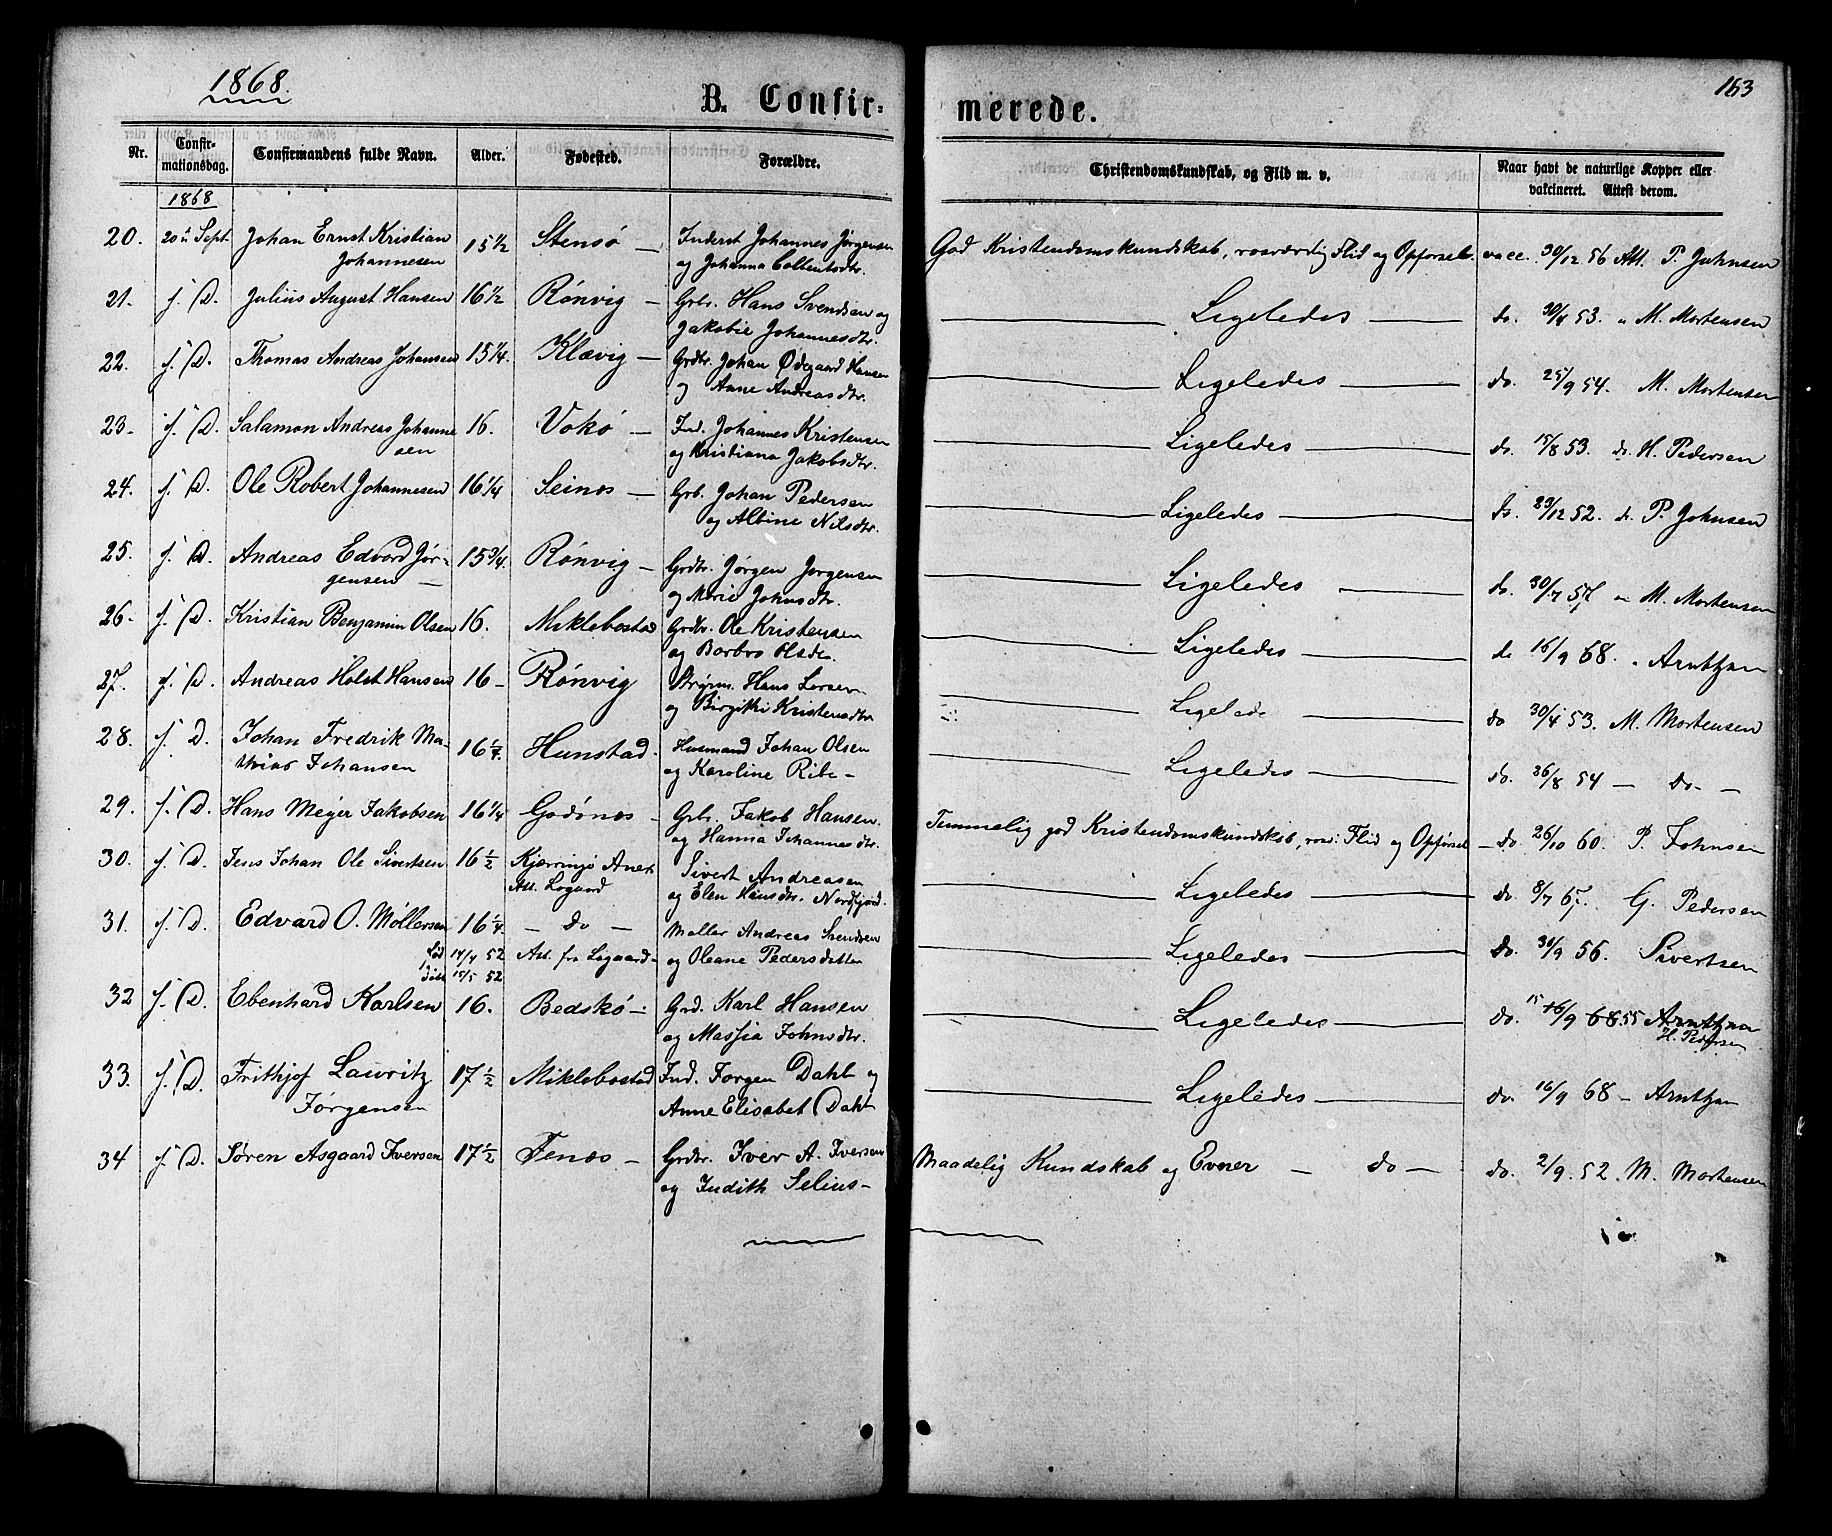 1868.
B. Confir-
merede.
163
Nr.
Confir-
mationsdag.
Confirmandens fulde Navn.
Alder.
Fødested.
Forældre.
Christendomskundskab, og Flid m. v.
Naar havt de naturlige Kopper eller
vakcineret. Attest derom.
1868
20. 20de Sept. Johan Ernst Kristian 15½ Stensø — Inderst Johannes Jørgensen God Kristendomskundskab, rosværdig Flid og Opførsel. vacc. 30/12 56 Att. P. Johnsen
Johannesen og Johanna
21. f. D. Julius August Hansen 16½ Rønvig — Grbr. Hans Svendsen og Ligeledes do. 30/4 53. " M. Mortensen
Jakobie Johannesdtr.
22. f. D. Thomas Andreas Johansen 15¼. Klævig — Grdbr. Johan Ødegaard Hansen Ligeledes do 25/9 54. M. Mortensen
og Anne Andreasdtr.
23. f. D. Salamon Andreas Johanne 16. Vokø — Ind. Johannes Kristensen Ligeledes do. 15/8 53. do. H. Pedersen
sen og Kristiana Jakobsdtr.
24. f. D. Ole Robert Johannesen 16¼ Seines — Grb. Johan Pedersen Ligeledes do. 29/12 52. do. P. Johnsen
og Albine Nilsdtr.
25. f. D. Andreas Edvard Jør- 15¾. Rønvig — Grdbr. Jørgen Jørgensen Ligeledes do. 30/7 57. " M. Mortensen
gensen — og Marie Johnsdtr.
26. f. D. Kristian Benjamin Olsen 16. Miklebostad Grdbr. Ole Kristensen Ligeledes do 16/9 68. " Arntzen
og Barbro Olsdr.
27. f. D. Andreas Holst Hansen 16 — Rønvig Hans Larsen Ligelede do 30/4 53. M. Mortensen
og Birgitte Kristensdtr
28. f. D. Johan Fredrik Ma- 16¼. Hunstad. Husmand Johan Olsen Ligeledes do. 26/8 54 — Do. —
thias Johansen og Karoline Ribe —
29. f. D. Hans Meyer Jakobsen 16¼ Godønes — Grbr. Jakob Hansen. Temmelig god Kristendomskundskab, ros: Flid og Opførsel — do. 26/10 60. P. Johnsen
og Hanna Johannesdtr.
30. f. D. Jens Johan Ole Sivertsen 16½ Kjærringø Anex Sivert Andreasen Ligeledes do. 8/7 67. G. Pedersen
Att. Logaard og Elen Hansdtr. Nordfjord.
31. f. D. Edvard O. Møllersen 16¼. — Do — Møller Andreas Svendsen Ligeledes do. 30/9 56. Sivertsen
Fød 14/4 52 Att. fra Logaard — og Oleane Pedersdatter
døbt 15/5 52
32 f. D. Ebenhard Karlsen 16. Bedskø — Grd. Karl Hansen Ligeledes do. 15 16/9 68 55 Arntzen
og Massia Johnsdtr. H. Pedersen
33. f. D. Frithjof Lauritz 17½ Miklebostad Ind. Jørgen Dahl og Ligeledes do. 16/9 68 — Arntzen
Jørgensen Anne Elisabet Dahl
34 f. D. Søren Asgaard Iversen 17½ Fenes — Grdbr. Iver A. Iversen Maadelig Kundskab og Evner — do — do. 2/9. 52. M. Mortensen
og Judith Selius —